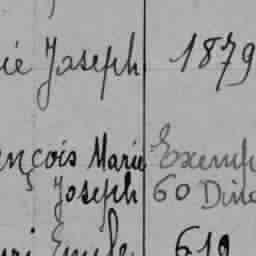 ie Joseph 1879
ençois Marie Exemp
Joseph 60 Dina
ri Emile 619